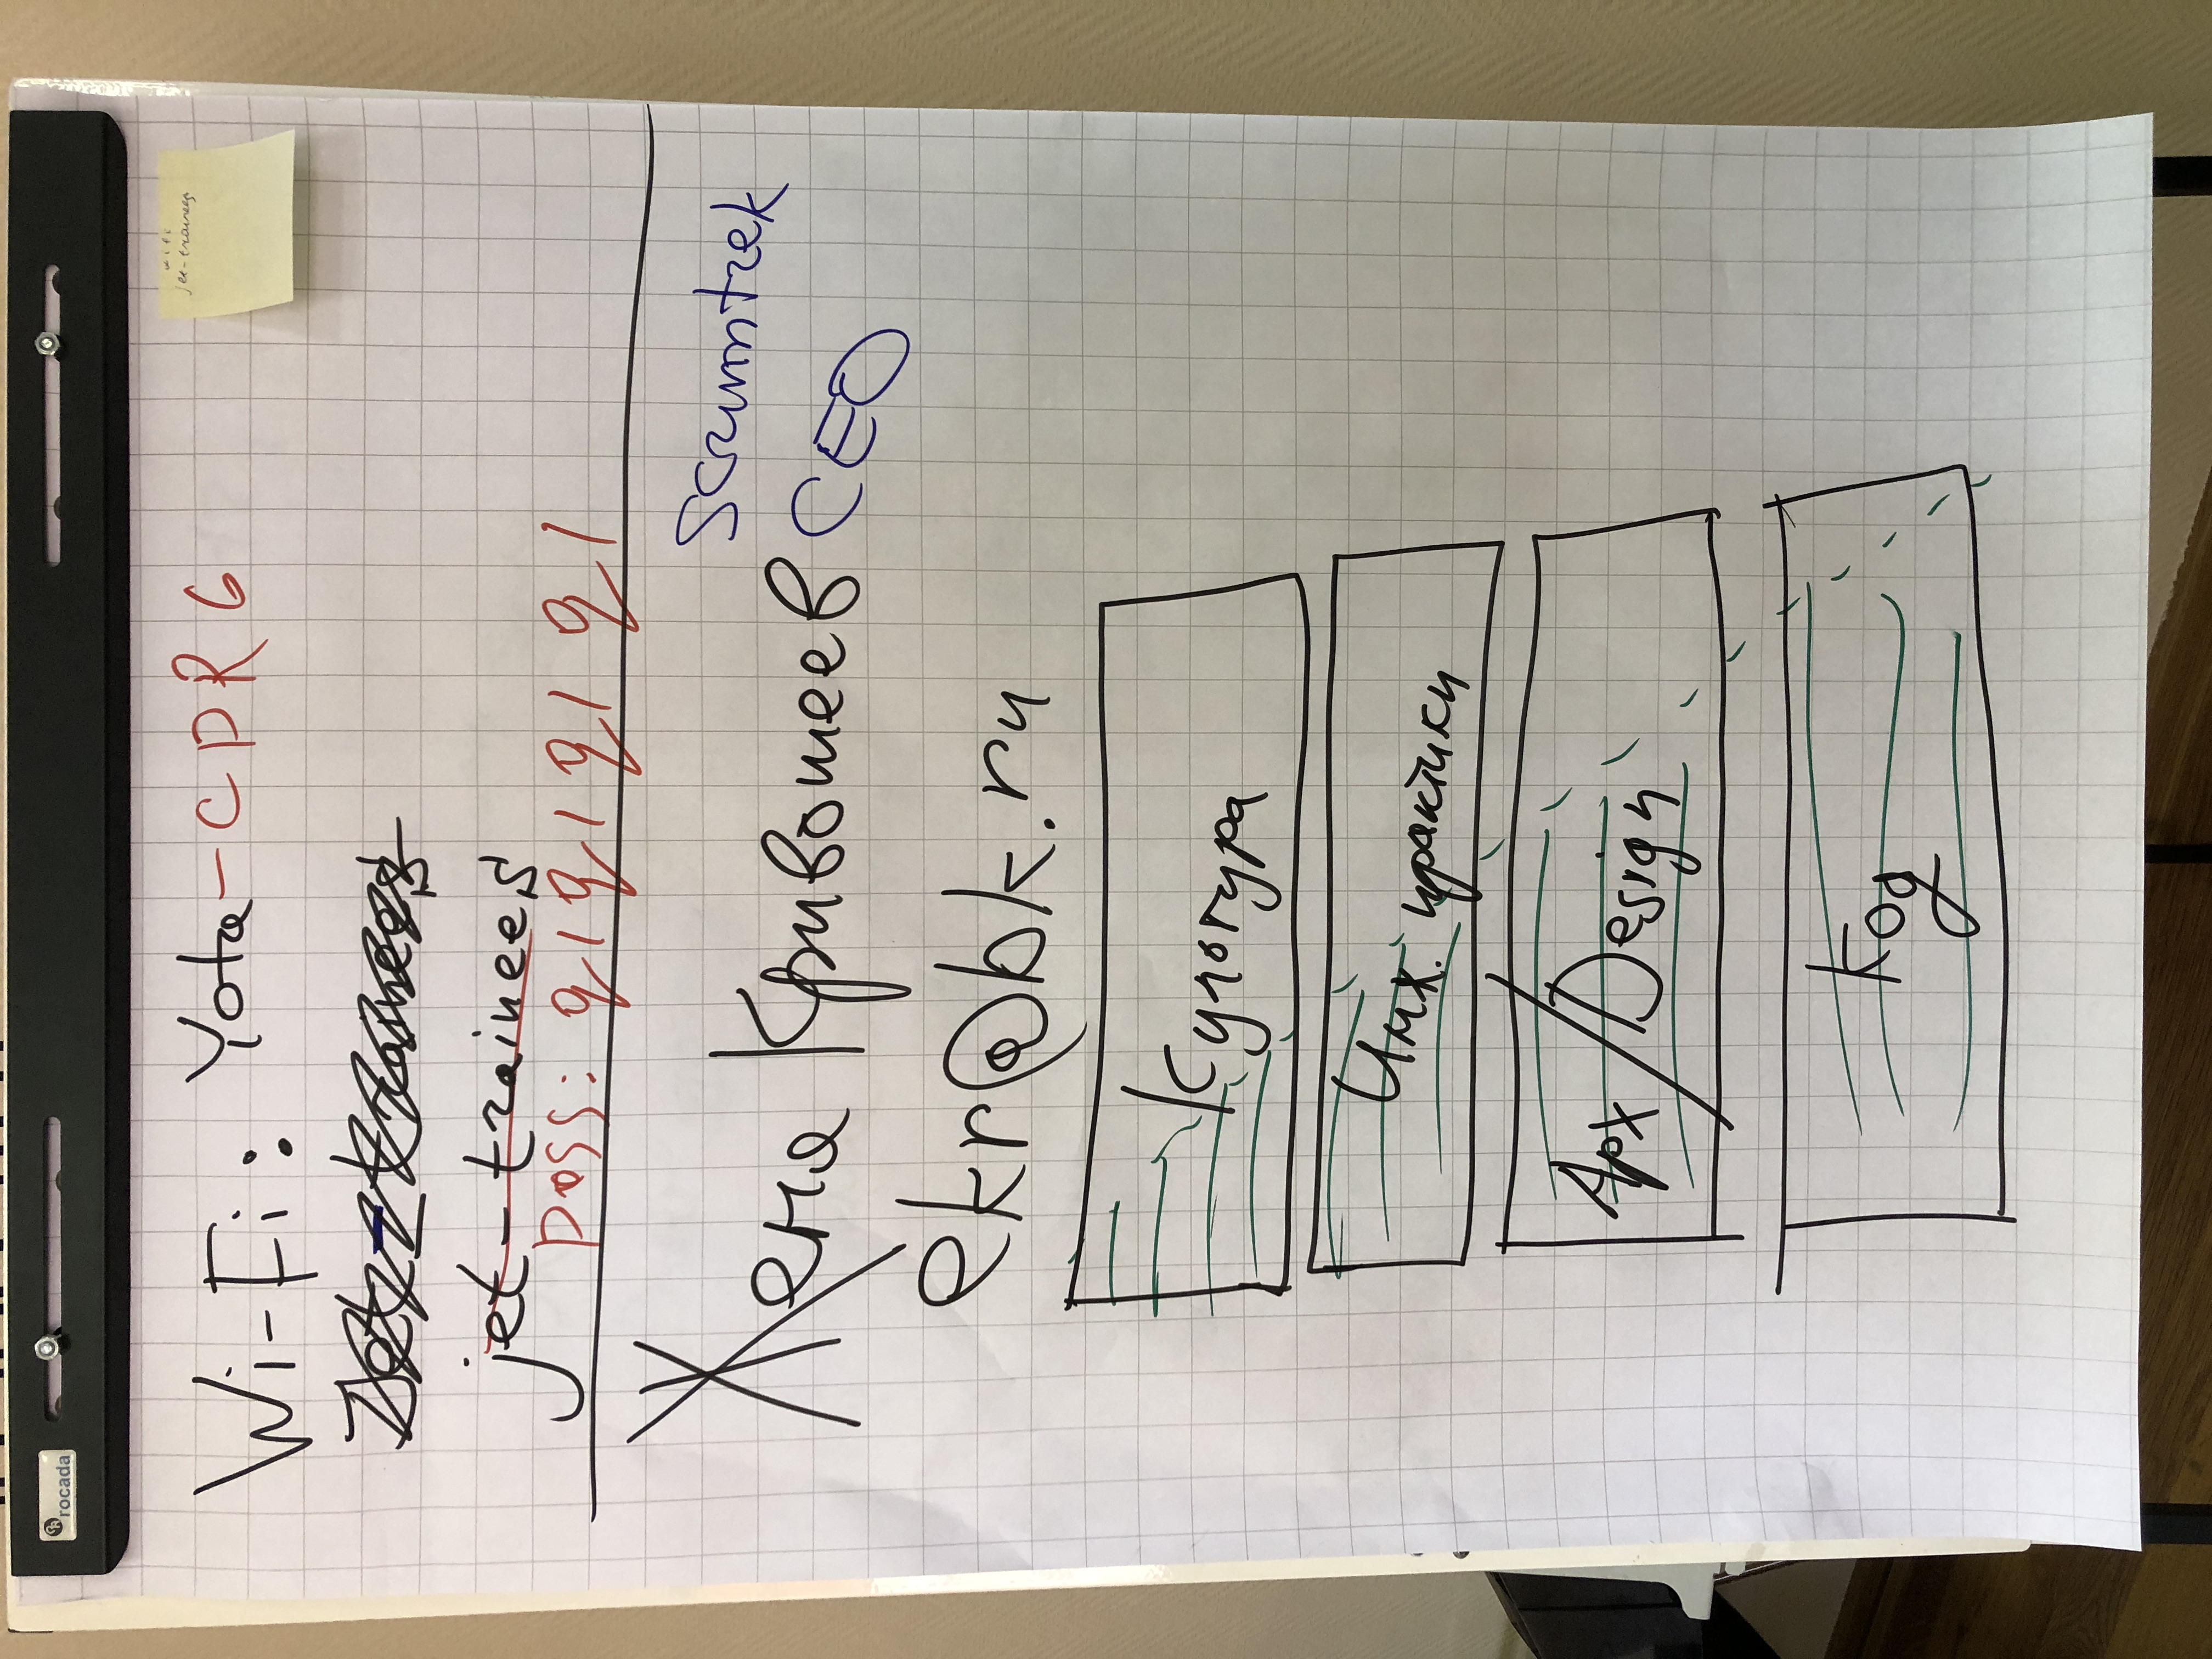 rocada
wifi
jet-trainees
Wi-Fi: Yota-CDR6
Jet-trainees
jet-trainees
pass: q1q1q1q1
Женя Кривошеев
Scrumtrek
CEO
ekr@bk.ru
Культура
Инж. практики
Арх/Design
Код